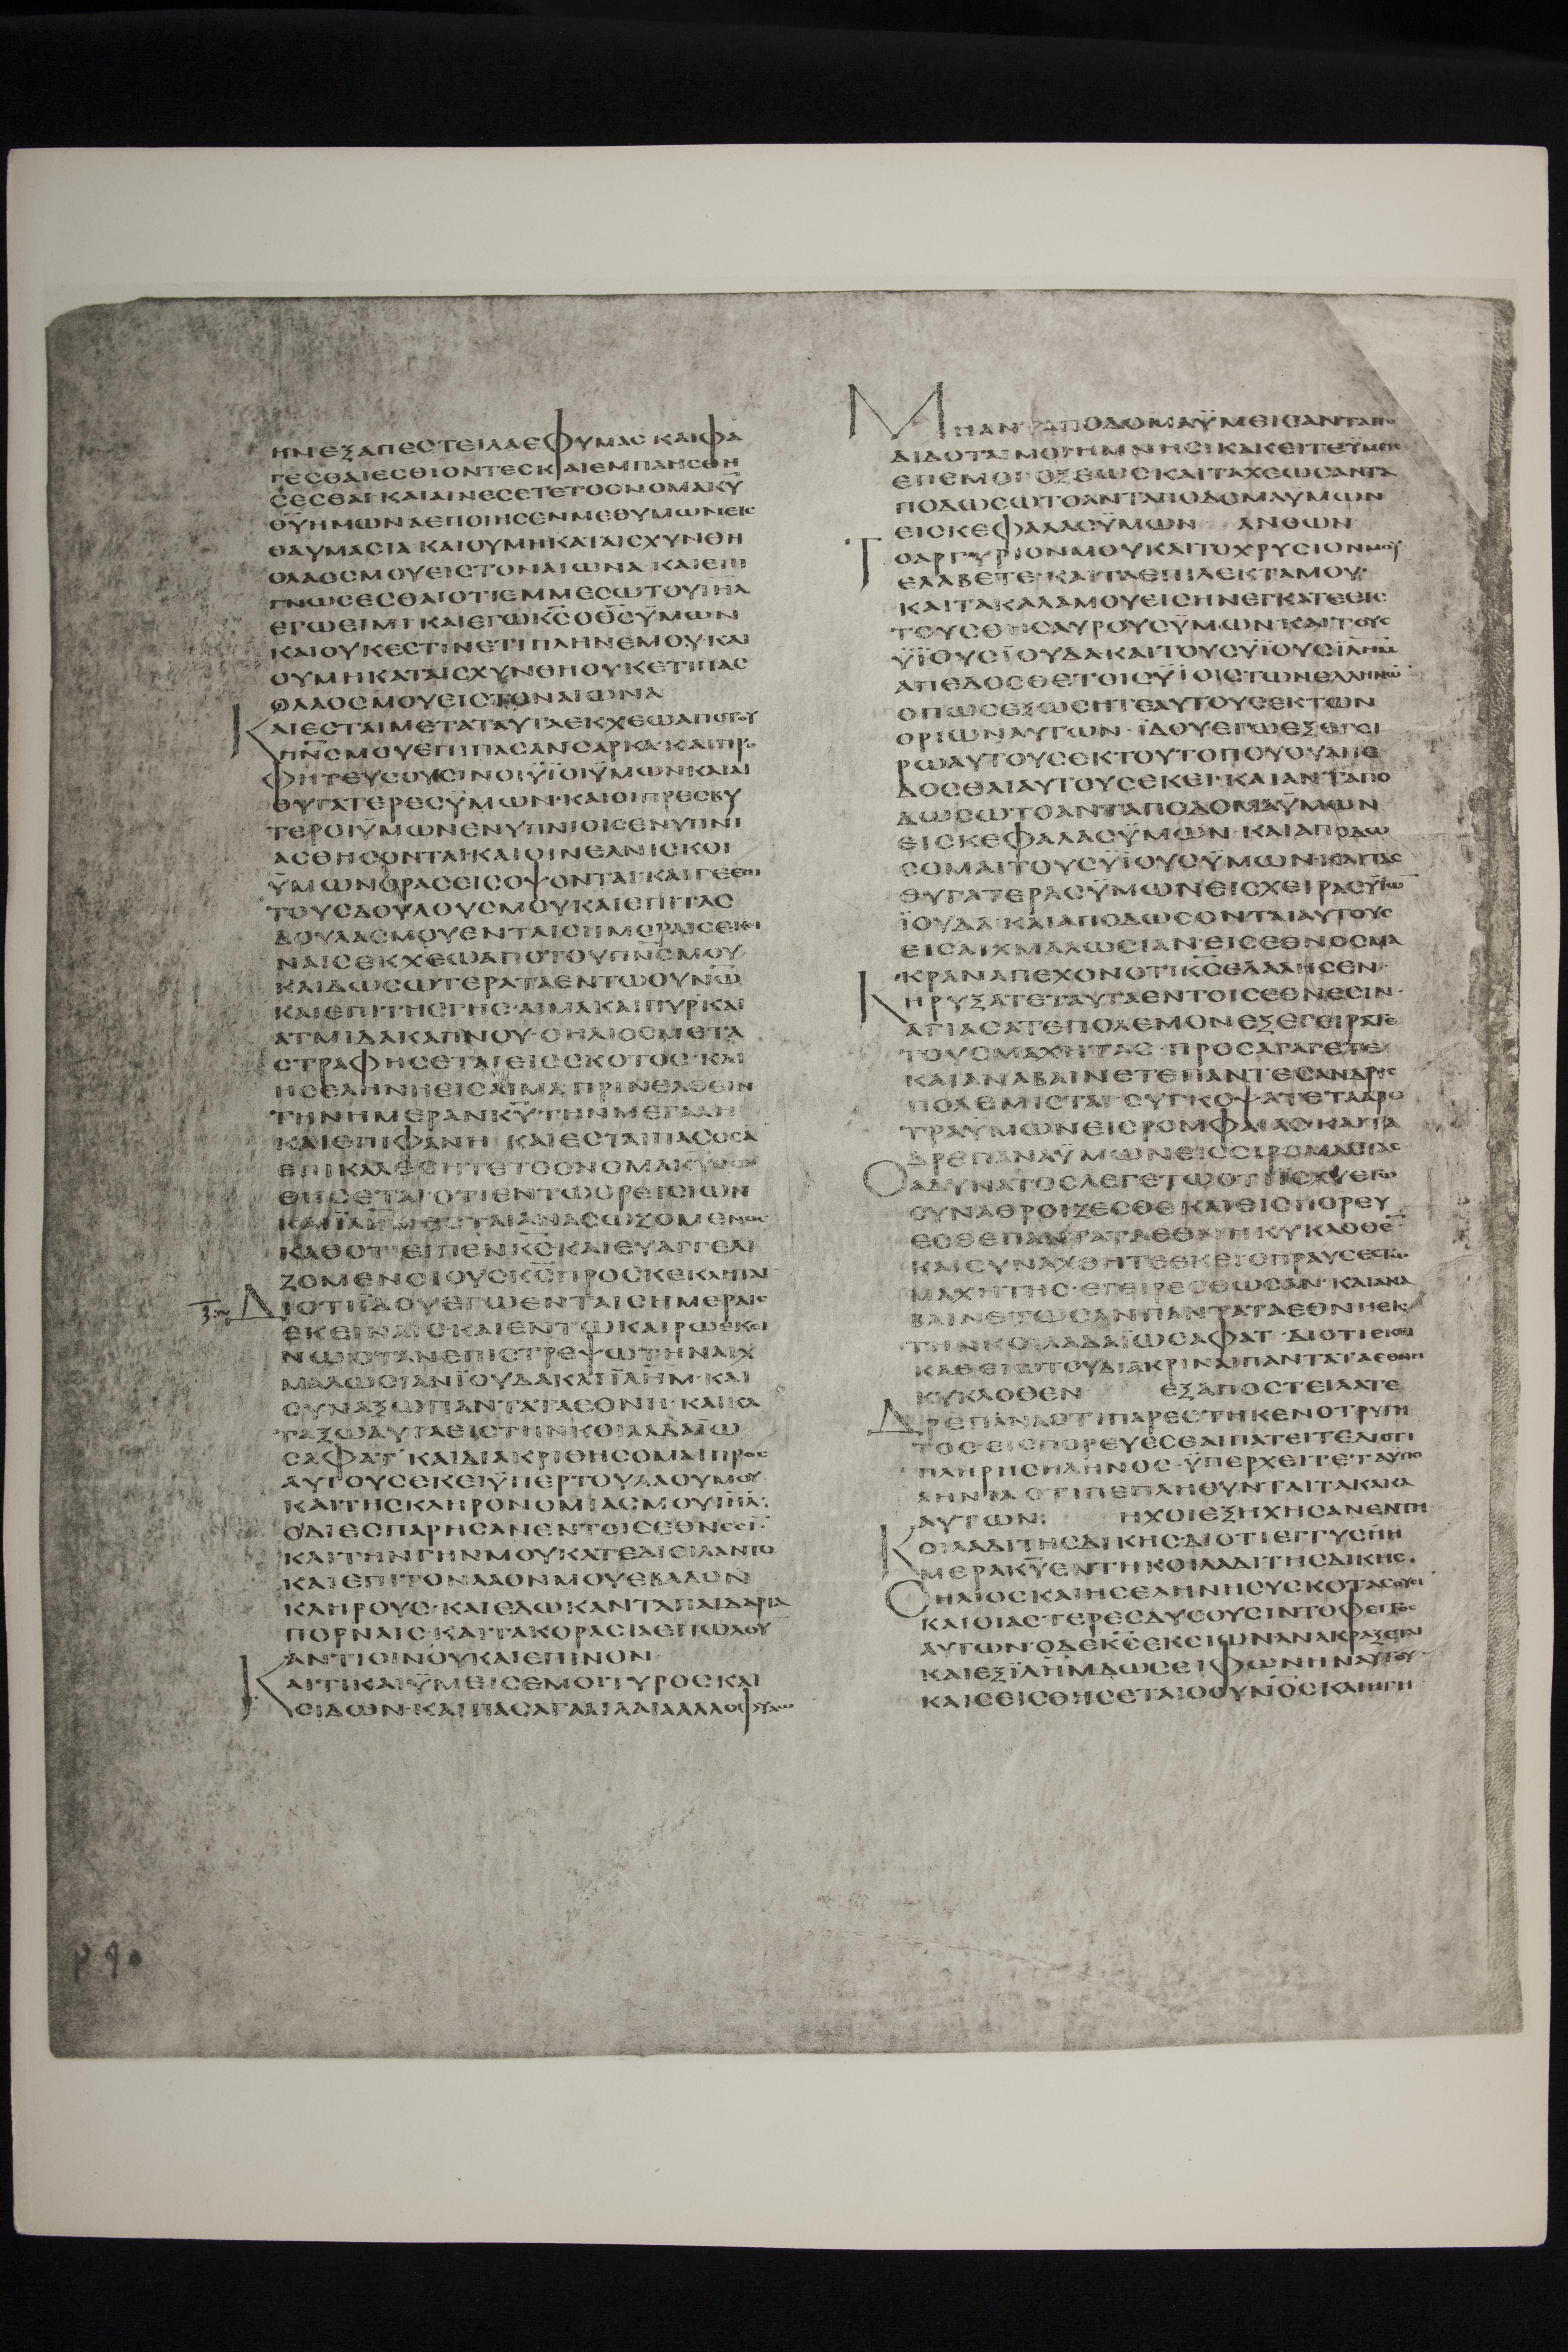 ΗΝΕΞΑΠΕСΤΕΙΛΑΕΦΥΜΑС ΚΑΙΦΑ
ΓΕСΘΑΙΕСΘΙΟΝΤΕСΚΑΙΕΜΠΛΗСΘΗ
СΕСΘΑΙ·ΚΑΙΑΙΝΕСΕΤΕΤΟΟΝΟΜΑΚ̅Υ̅
Θ̅Υ̅ΗΜΩΝΑΕΠΟΙΗСΕΝΜΕΘΥΜΩΝΕΙС
ΘΑΥΜΑСΙΑ ΚΑΙΟΥΜΗΚΑΤΑΙСΧΥΝΘΗ
ΟΛΑΟСΜΟΥΕΙСΤΟΝΑΙΩΝΑ·ΚΑΙΕΠΙ
ΓΝΩСΕСΘΑΙΟΤΙΕΜΜΕСΩΤΟΥΙ̅Η̅Λ̅
ΕΓΩΕΙΜΙ ΚΑΙΕΓΩΚ̅С̅ΟΘ̅С̅ΫΜΩΝ
ΚΑΙΟΥΚΕСΤΙΝΕΤΙΠΛΗΝΕΜΟΥ·ΚΑΙ
ΟΥΜΗΚΑΤΑΙСΧΥΝΘΗΟΥΚΕΤΙΠΑС
ΟΛΑΟСΜΟΥΕΙСΤΟΝΑΙΩΝΑ
ΚΑΙΕСΤΑΙΜΕΤΑΤΑΥΤΑΕΚΧΕΩΑΠΟΤΟΥ
Π̅Ν̅С̅ΜΟΥΕΠΙΠΑСΑΝСΑΡΚΑ·ΚΑΙΠΡΟ
ΦΗΤΕΥСΟΥСΙΝΟΙΫΪΟΙΫΜΩΝΚΑΙΑΙ
ΘΥΓΑΤΕΡΕСΫΜΩΝ·ΚΑΙΟΙΠΡΕСΒΥ
ΤΕΡΟΙΫΜΩΝΕΝΥΠΝΙΟΙСΕΝΥΠΝΙ
ΑСΘΗСΟΝΤΑΙ·ΚΑΙΟΙΝΕΑΝΙСΚΟΙ
ΫΜΩΝΟΡΑСΕΙСΟΨΟΝΤΑΙ·ΚΑΙΓΕΕΠΙ
ΤΟΥСΔΟΥΛΟΥСΜΟΥΚΑΙΕΠΙΤΑС
ΔΟΥΛΑСΜΟΥΕΝΤΑΙСΗΜΕΡΑΙСΕΚΕΙ
ΝΑΙСΕΚΧΕΩΑΠΟΤΟΥΠ̅Ν̅С̅ΜΟΥ
ΚΑΙΔΩСΩΤΕΡΑΤΑΕΝΤΩΟΥΝ̅Ω̅
ΚΑΙΕΠΙΤΗСΓΗС·ΑΙΜΑΚΑΙΠΥΡΚΑΙ
ΑΤΜΙΔΑΚΑΠΝΟΥ·ΟΗΛΙΟСΜΕΤΑ
СΤΡΑΦΗСΕΤΑΙΕΙССΚΟΤΟС·ΚΑΙ
ΗСΕΛΗΝΗΕΙСΑΙΜΑΠΡΙΝΕΛΘΕΙΝ
ΤΗΝΗΜΕΡΑΝΚ̅Υ̅·ΤΗΝΜΕΓΑΛΗ
ΚΑΙΕΠΙΦΑΝΗ ΚΑΙΕСΤΑΙΠΑСΟСΑ
ΘΗСΕΤΑΙ·ΟΤΙΕΝΤΩΟΡΕΙСΙΩΝ
ΚΑΘΟΤΙΕΙΠΕΝΚ̅С̅ΚΑΙΕΥΑΓΓΕΛΙ
ΖΟΜΕΝΟΙΟΥСΚ̅С̅ΠΡΟСΚΕΚΛΗΤΑΙ
ΔΙΟΤΙΪΔΟΥΕΓΩΕΝΤΑΙСΗΜΕΡΑΙС
ΕΚΕΙΝΑΙС·ΚΑΙΕΝΤΩΚΑΙΡΩΕΚΕΙ
ΝΩΟΤΑΝΕΠΙСΤΡΕΨΩΤΗΝΑΙΧ
ΜΑΛΩСΙΑΝΪΟΥΔΑΚΑΙΪ̅Λ̅Η̅Μ̅·ΚΑΙ
СΥΝΑΞΩΠΑΝΤΑΤΑΕΘΝΗ·ΚΑΙΚΑ
ΤΑΞΩΑΥΤΑΕΙСΤΗΝΚΟΙΛΑΔΑΪΩ
СΑΦΑΤ·ΚΑΙΔΙΑΚΡΙΘΗСΟΜΑΙΠΡΟС
ΑΥΤΟΥСΕΚΕΙΫΠΕΡΤΟΥΛΑΟΥΜΟΥ
ΚΑΙΤΗСΚΛΗΡΟΝΟΜΙΑСΜΟΥΙ̅Η̅Λ̅·
ΟΙΔΙΕСΠΑΡΗСΑΝΕΝΤΟΙСΕΘΝΕСΙ·
ΚΑΙΤΗΝΓΗΝΜΟΥΚΑΤΕΔΙΕΙΛΑΝΤΟ
ΚΑΙΕΠΙΤΟΝΛΑΟΝΜΟΥΕΒΑΛΟΝ
ΚΛΗΡΟΥС·ΚΑΙΕΔΩΚΑΝΤΑΠΑΙΔΑΡΙΑ
ΠΟΡΝΑΙС·ΚΑΙΤΑΚΟΡΑСΙΑΕΠΩΛΟΥ
ΑΝΤΙΟΙΝΟΥΚΑΙΕΠΙΝΟΝ
ΚΑΙΤΙΚΑΙΫΜΕΙСΕΜΟΙΤΥΡΟСΚΑΙ
СΙΔΩΝ·ΚΑΙΠΑСΑΓΑΛΙΛΑΙΑΑΛΛΟΦΥΛΩ
ΜΗΑΝΤΑΠΟΔΟΜΑΫΜΕΙСΑΝΤΑΠΟ
ΕΠΕΜΟΙΟΞΕΩСΚΑΙΤΑΧΕΩСΑΝΤΑ
ΠΟΔΩСΩΤΟΑΝΤΑΠΟΔΟΜΑΥΜΩΝ
ΕΙСΚΕΦΑΛΑСΫΜΩΝ ΑΝΘΩΝ
ΤΟΑΡΓΥΡΙΟΝΜΟΥΚΑΙΤΟΧΡΥСΙΟΝΜΟΥ
ΕΛΑΒΕΤΕ·ΚΑΙΤΑΕΠΙΛΕΚΤΑΜΟΥ·
ΚΑΙΤΑΚΑΛΑΜΟΥΕΙСΗΝΕΓΚΑΤΕΕΙС
ΤΟΥСΘΗСΑΥΡΟΥСΫΜΩΝ·ΚΑΙΤΟΥС
ΫΪΟΥСΪΟΥΔΑΚΑΙΤΟΥСΫΪΟΥСΪ̅Λ̅Η̅Μ̅
ΑΠΕΔΟСΘΕΤΟΙСΫΪΟΙСΤΩΝΕΛΛΗΝΩ
ΟΠΩСΕΞΩСΗΤΕΑΥΤΟΥСΕΚΤΩΝ
ΟΡΙΩΝΑΥΤΩΝ·ΪΔΟΥΕΓΩΕΞΕΓΕΙ
ΡΩΑΥΤΟΥСΕΚΤΟΥΤΟΠΟΥΟΥΑΠΕ
ΔΟСΘΑΙΑΥΤΟΥСΕΚΕΙ·ΚΑΙΑΝΤΑΠΟ
ΔΩСΩΤΟΑΝΤΑΠΟΔΟΜΑΫΜΩΝ
ΕΙСΚΕΦΑΛΑСΫΜΩΝ·ΚΑΙΑΠΟΔΩ
СΟΜΑΙΤΟΥСΫΪΟΥСΫΜΩΝ·ΚΑΙΤΑС
ΘΥΓΑΤΕΡΑСΫΜΩΝΕΙСΧΕΙΡΑСΫΪΩ
ΪΟΥΔΑ·ΚΑΙΑΠΟΔΩСΟΝΤΑΙΑΥΤΟΥС
ΕΙСΑΙΧΜΑΛΩСΙΑΝ·ΕΙСΕΘΝΟСΜΑ
ΚΡΑΝΑΠΕΧΟΝΟΤΙΚ̅С̅ΕΛΑΛΗСΕΝ·
ΚΗΡΥΞΑΤΕΤΑΥΤΑΕΝΤΟΙСΕΘΝΕСΙΝ·
ΑΓΙΑСΑΤΕΠΟΛΕΜΟΝΕΞΕΓΕΙΡΑΤΕ
ΤΟΥСΜΑΧΗΤΑС·ΠΡΟСΑΓΑΓΕΤΕ
ΚΑΙΑΝΑΒΑΙΝΕΤΕΠΑΝΤΕСΑΝΔΡΕС
ΠΟΛΕΜΙСΤΑΙ·СΥΓΚΟΨΑΤΕΤΑΑΡΟ
ΤΡΑΥΜΩΝΕΙСΡΟΜΦΑΙΑС·ΚΑΙΤΑ
ΔΡΕΠΑΝΑΫΜΩΝΕΙССΙΡΟΜΑСΤΑС
ΟΑΔΥΝΑΤΟСΛΕΓΕΤΩΟΤΙΪСΧΥΕΓΩ
СΥΝΑΘΡΟΙΖΕСΘΕ ΚΑΙΕΙСΠΟΡΕΥ
ΕСΘΕΠΑΝΤΑΤΑΕΘΝΗΚΥΚΛΟΘΕ
ΚΑΙСΥΝΑΧΘΗΤΕΕΚΕΙΟΠΡΑΥСΕСΤΩ
ΜΑΧΗΤΗС·ΕΓΕΙΡΕСΘΩСΑΝ·ΚΑΙΑΝΑ
ΒΑΙΝΕΤΩСΑΝΠΑΝΤΑΤΑΕΘΝΗΕΙС
ΤΗΝΚΟΙΛΑΔΑΪΩСΑΦΑΤ·ΔΙΟΤΙΕΚΕΙ
ΚΑΘΕΙΩΤΟΥΔΙΑΚΡΙΝΑΙΠΑΝΤΑΤΑΕΘΝΗ
ΚΥΚΛΟΘΕΝ ΕΞΑΠΟСΤΕΙΛΑΤΕ
ΔΡΕΠΑΝΑΟΤΙΠΑΡΕСΤΗΚΕΝΟΤΡΥΓΗ
ΤΟС·ΕΙСΠΟΡΕΥΕСΘΑΙΠΑΤΕΙΤΕΔΙΟΤΙ
ΠΛΗΡΗСΗΛΗΝΟС·ΫΠΕΡΧΕΙΤΕΤΑΥΠΟ
ΛΗΝΙΑΟΤΙΠΕΠΛΗΘΥΝΤΑΙΤΑΚΑΚΑ
ΑΥΤΩΝ· ΗΧΟΙΕΞΗΧΗСΑΝΕΝΤΗ
ΚΟΙΛΑΔΙΤΗСΔΙΚΗС·ΔΙΟΤΙΕΓΓΥСΗΗ
ΜΕΡΑΚ̅Υ̅ΕΝΤΗΚΟΙΛΑΔΙΤΗСΔΙΚΗС·
ΟΗΛΙΟСΚΑΙΗСΕΛΗΝΗСΥСΚΟΤΑСΟΥСΙ
ΚΑΙΟΙΑСΤΕΡΕСΔΥСΟΥСΙΝΤΟΦΕΓΓΟС
ΑΥΤΩΝ·ΟΔΕΚ̅С̅ΕΚСΙΩΝΑΝΑΚΡΑΞΕΤΑΙ
ΚΑΙΕΞΪ̅Λ̅Η̅Μ̅ΔΩСΕΙΦΩΝΗΝΑΥΤΟΥ·
ΚΑΙСΕΙСΘΗСΕΤΑΙΟΟΥΝ̅Ο̅С̅ΚΑΙΗΓΗ